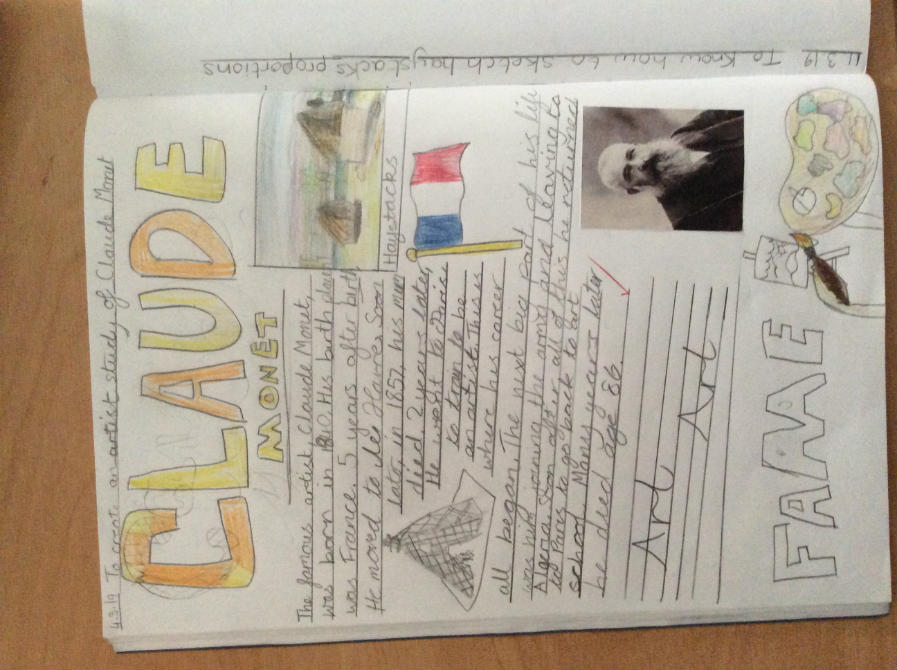 11.3.19 To know how to sketch haystacks proportions
4.3.19 To create an artist study of Claude Monet
CLAUDE
MONET
The famous artist Claude Monet,
was born in 1840. His birth
was France. 5 years after birth
He moved to Le Havre. Soon
later in 1857 his mum
died 2 years later,
He went to Paris
to train to be
an artist. This is
where his career
Haystacks
all began. The next big part of his life
was him joining the army and leaving to
Algeria. Soon after all of this he returned
to Paris to go back to art
school. Many years later
he died age 86.
Art
Art
FAME